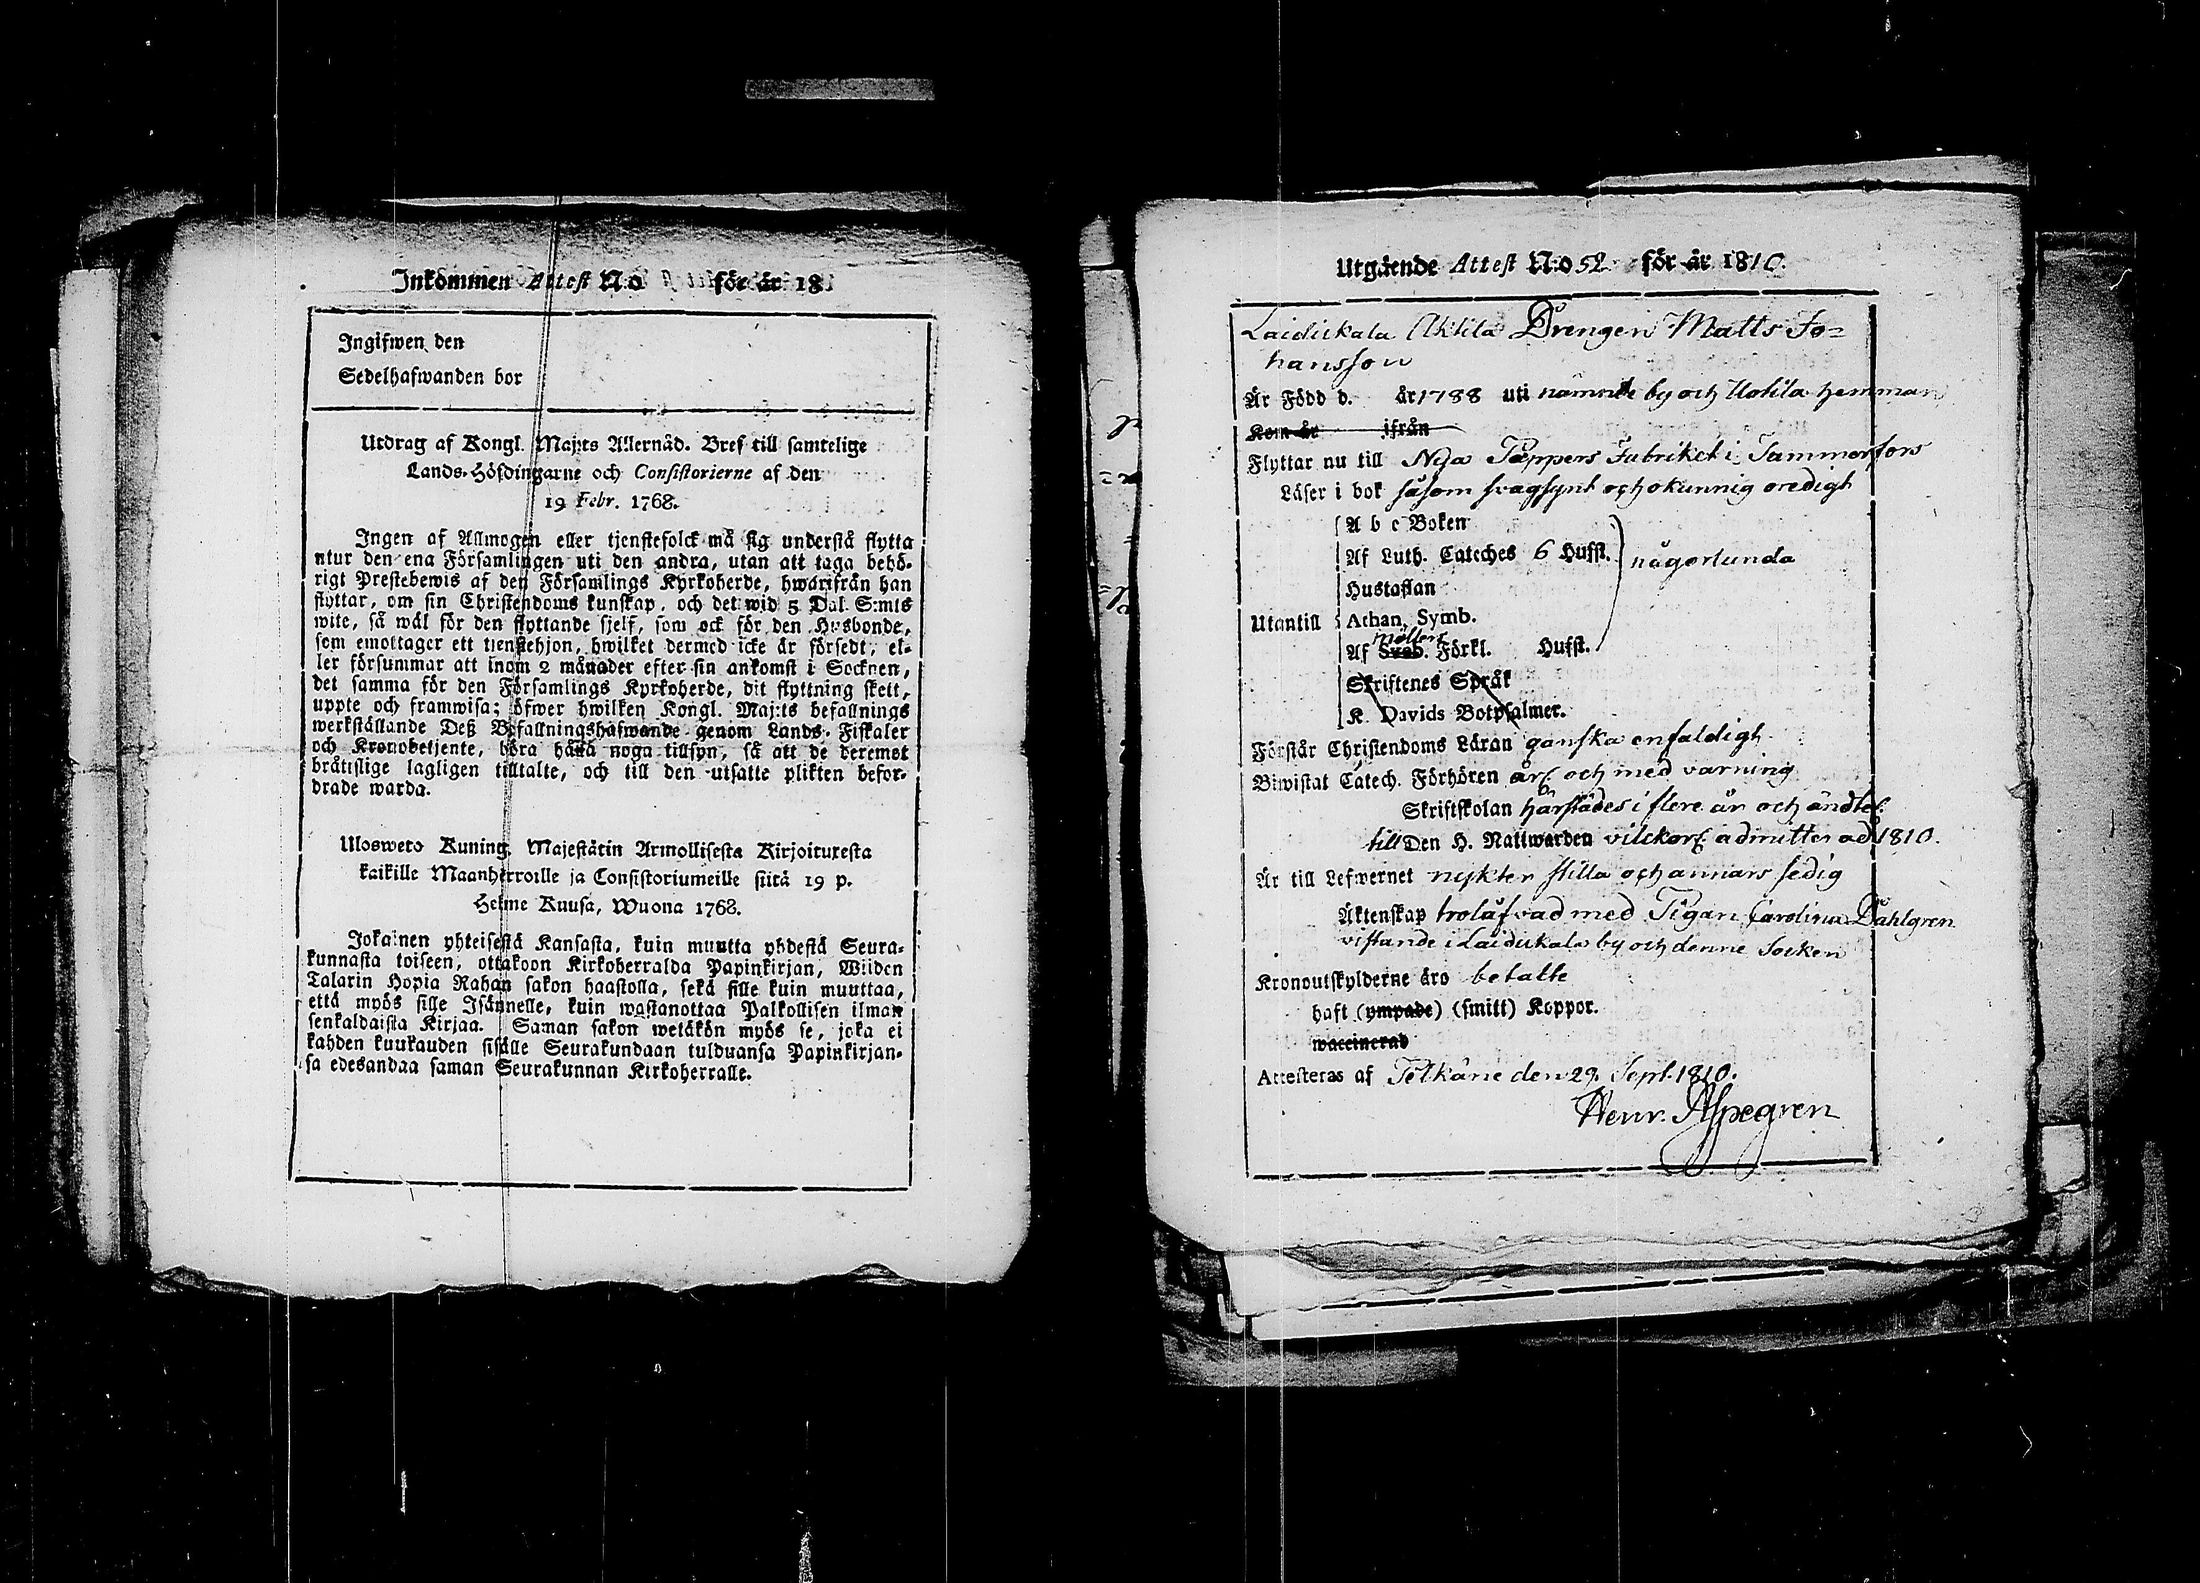 Inkommen Attest N:o för år 18
Ingifwen den
Sedelhafwanden bor
Utdrag af Kongl. Maj:ts Allernåd. Bref till samtelige
Lands-Höfdingarne och Consistorierne af den
19 Febr. 1768.
Ingen af Allmogen eller tjenstefolck må sig understå flytta
ntur den ena Församlingen uti den andra, utan att taga behö-
rigt Prestebewis af den Församlings Kyrkoherde, hwarifrån han
flyttar, om sin Christendoms kunskap, och det wid 5 Dal. S:mts
wite, så wäl för den flyttande sjelf, som ock för den Husbonde,
som emottager ett tjenstehjon, hwilket dermed icke är försedt, el-
ler försummar att inom 2 månader efter sin ankomst i Socknen,
det samma för den Församlings Kyrkoherde, dit flyttning skett,
uppte och framwisa; öfwer hwilken Kongl. Maj:ts befallnings
werkställande Deß Befallningshafwande genom Lands-Fiskaler
och Kronobetjente, böra hafwa noga tillsyn, så att de deremot
bråtislige lagligen tilltalte, och till den utsatte plikten befor-
drade warda.
Ulosweto Kuning. Majestätin Armollisesta Kirjoituxesta
kaikille Maanherroille ja Consistoriumeille siitä 19 p.
Helme Kuusa, Wuona 1768.
Jokainen yhteisestä Kansasta, kuin muutta yhdestä Seura-
kunnasta toiseen, ottakoon Kirkoherralda Papinkirjan, Wiiden
Talarin Hopia Rahan sakon haastolla, sekä sille kuin muuttaa,
että myös sille Isännelle, kuin wastanottaa Palkollisen ilman
senkaldaista Kirjaa. Saman sakon wetäkön myös se, joka ei
kahden kuukauden sisälle Seurakundaan tulduansa Papinkirjan-
sa edesandaa saman Seurakunnan Kirkoherralle.
Utgående Attest N:o 52 för år 1810.
Laidickala Uktila Drengen Matts Jo=
hansson
Är Född d. år 1788 uti nämnde by och Uotila hemman
Kom år ifrån
Flyttar nu till Nya Pappers Fabriket i Tammerfors
Läser i bok såsom svagsynt och okunnig oredigt
A b c Boken
Af Luth. Catches 6 Hufst. någorlunda
Hustaflan
Utantill Athan. Symb.
Möllers
Af Sveb. Förkl. Hufst.
Skriftenes Språk
K. Davids Botpsalmer.
Förstår Christendoms Läran ganska enfaldigt
Biwistat Catech. Förhören årl. och med varning
Skriftskolan härstädes i flere år och ändtel.
till Den H. Nattwarden vilckorl. admitterad 1810.
Är till Lefwernet nykter stilla och annars sedig
Äktenskap trolåfvad med Pigan Carolina Dahlgren
vistande i Laidickala by och denne Socken
Kronoutskylderne äro betalte
haft (ympade) (smitt) Koppor.
waccinerad
Attesteras af Pelkäne den 29. Sept. 1810.
Henr. Aspegren